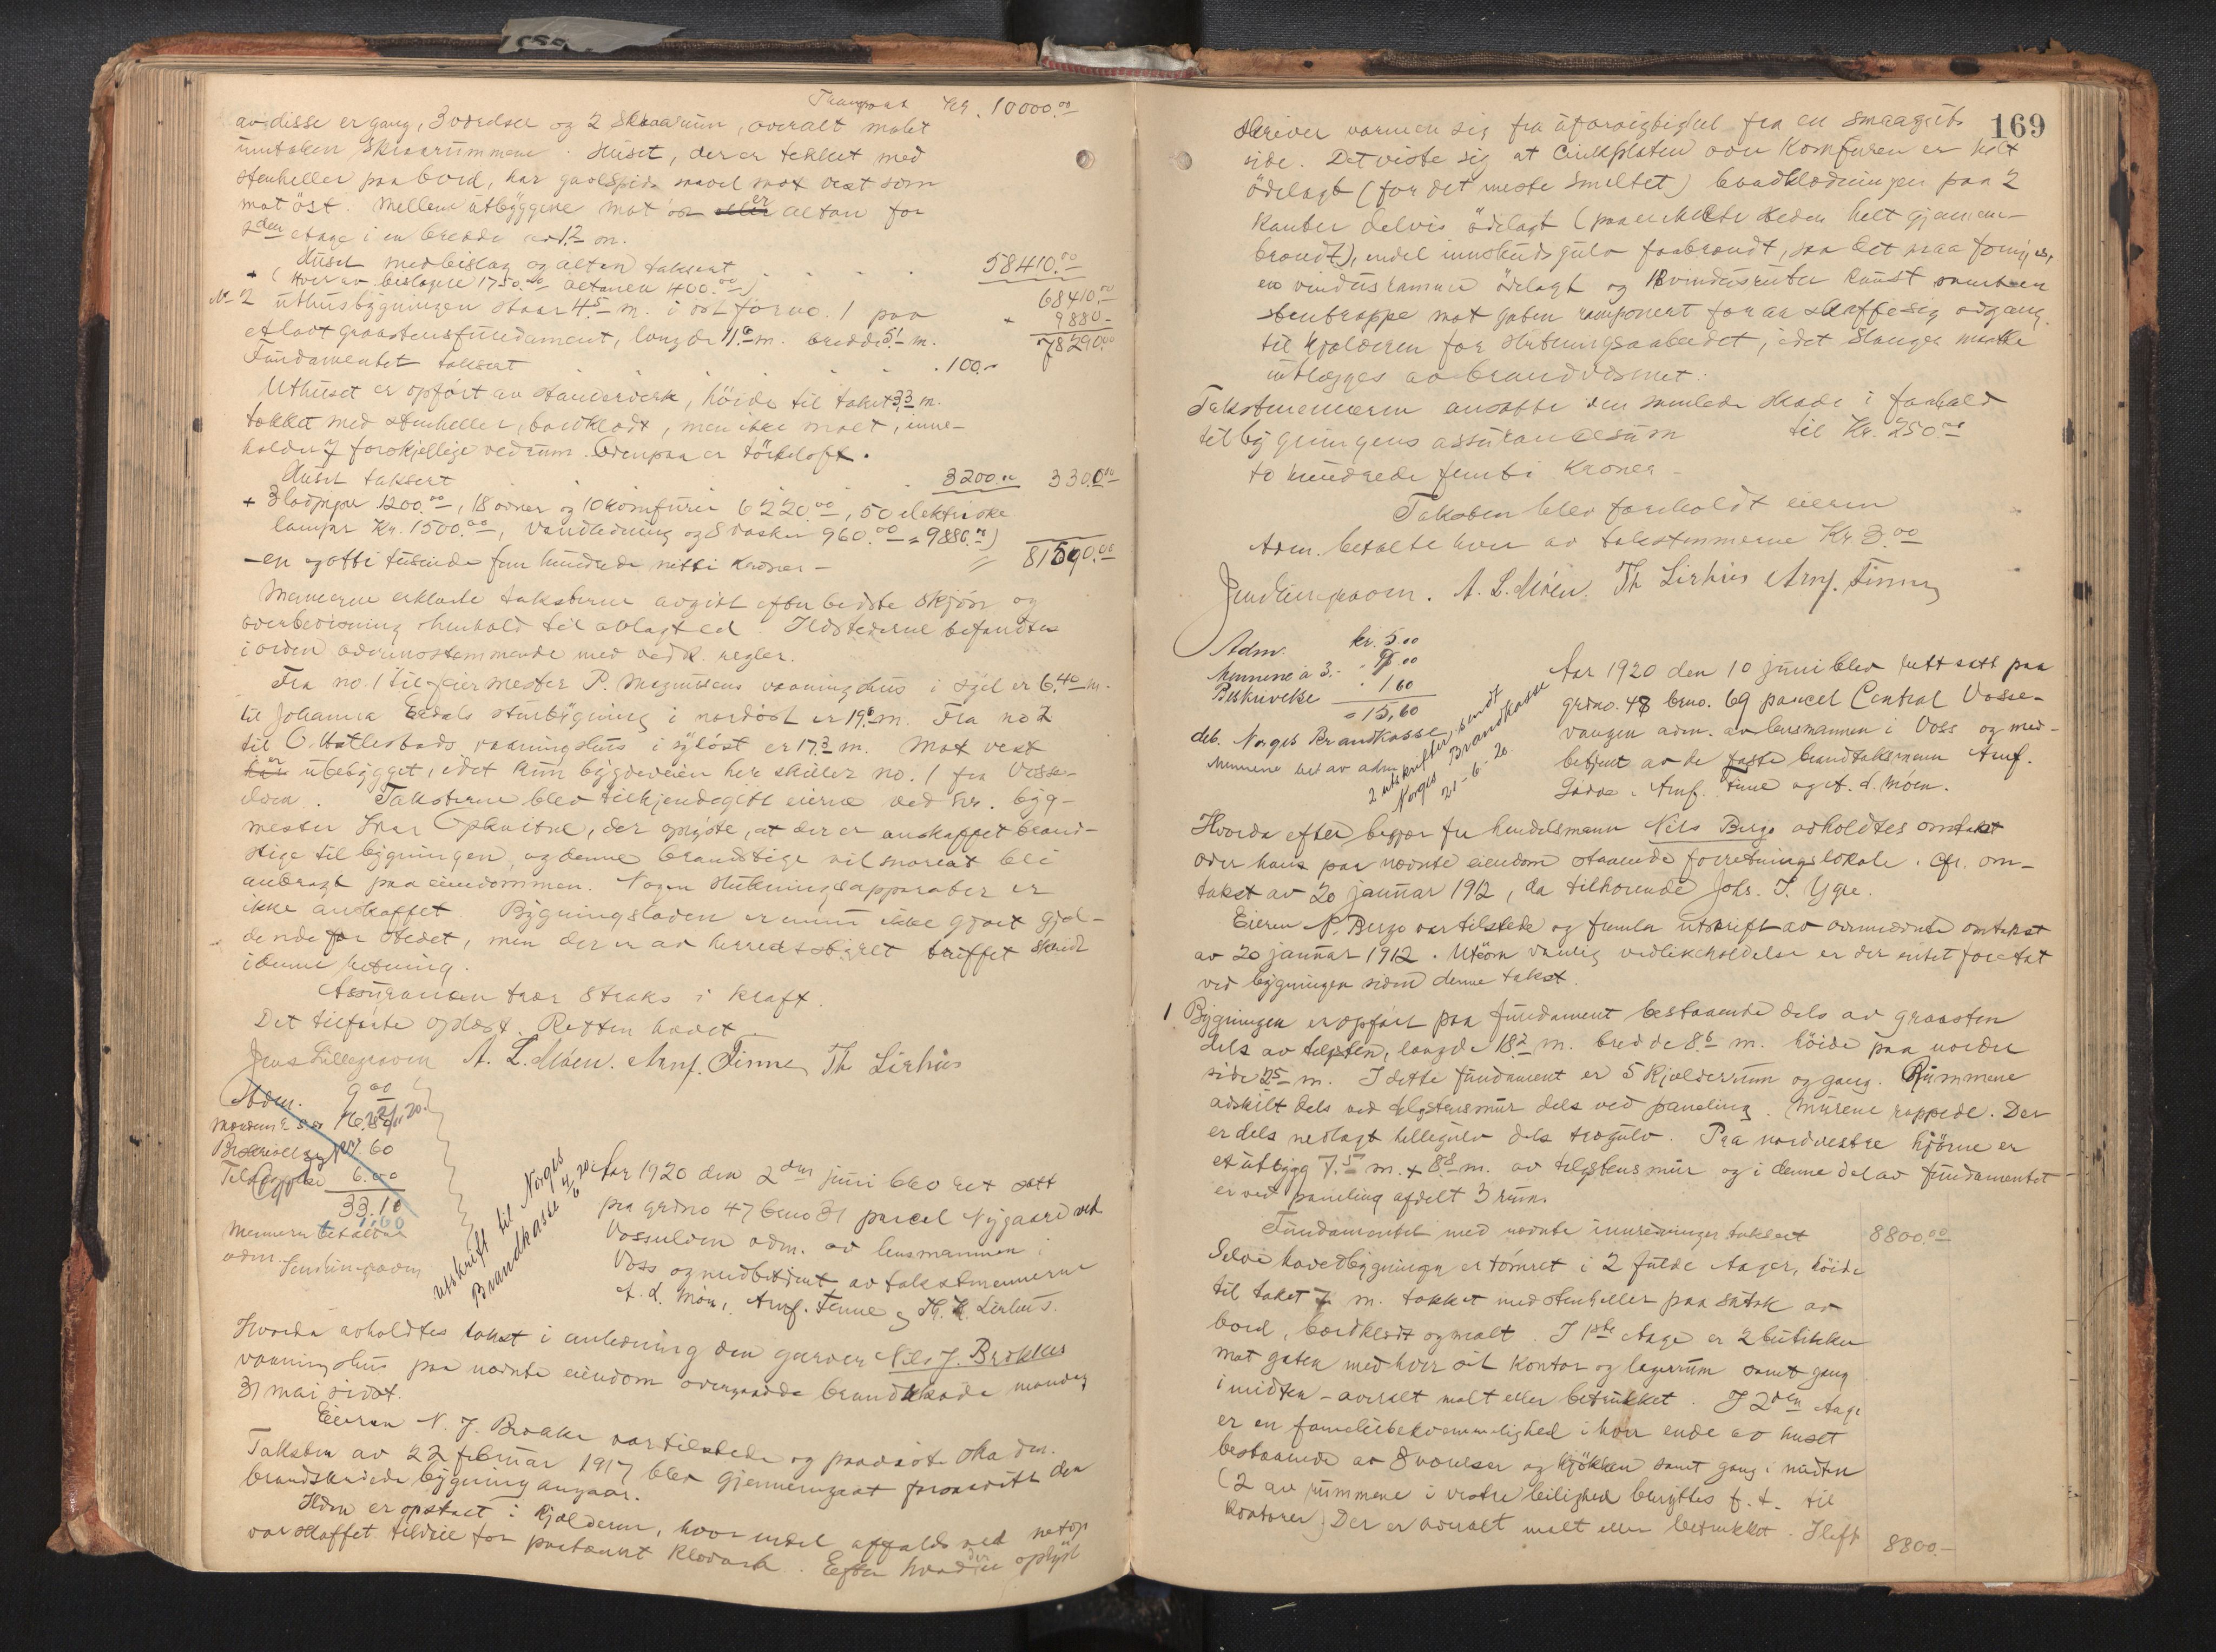 Transport Kr. 10000.00
av disse er gang, 3 værelser og 2 Skraarum, overalt malet
undtaken Skraarummene. Huset, der er tekket med
stenheller paa bord, har gavlspids saavel mot vest som
mot öst. Mellem utbyggene mot öst er altan for
2den etage i en bredde av 1.2 m.
Huset med beislag og altan taksert 58410.00
(Hver av beislagene 1750.00 altanen 400.00) 68410.00
No 2 uthusbygningen staar 4.5 m. i öst for no. 1 paa + 9880.-
et lavt graastensfundament, længde 11.6 m. bredde 5.1 m. 78290.00
Fundamentet taksert 100.-
Uthuset er opfört av stænderverk, höide til taket 3.3 m.
tækket med stenheller, bordklædt, men ikke malt, inne-
holder 7 forskjellige vedrum. Ovenpaa er törkeloft.
Huset taksert 3200.00 3300.00
+ 3 ladpiper 1200.00, 18 ovner og 10 komfurer 6220.00, 50 elektriske
lamper Kr. 1500.00, Vandledning og 8 vasker 960.00 = 9880.00)
- en og otti tusinde fem hundrede nitti kroner - = 81590.00
Mændene erklærte taksterne avgit efter bedste skjön og
overbevisning i henhold til avlagt ed. Ildstederne befandtes
i orden overensstemmende med vedk. regler.
Fra no. 1 til garvermester P. Magnussens vaaningshus i syd er 6.40 m.
til Johanna Sedals stuebygning i nordöst er 19.6 m. Fra no 2
til O. Hatlestads vaaningshus i sydöst er 17.3 m. Mot vest
er ubebygget, idet kun bygdeveien her skiller no. 1 fra Vosse-
elven. Taksterne blev tilkjendegitt eierne ved hr. byg-
mester Ivar Opkvitne, der oplyste, at der er anskaffet brand-
stige til bygningen, og denne brandstige vil snarest bli
anbragt paa eiendommen. Nogen slukningsapparater er
ikke anskaffet. Bygningsloven er ennu ikke gjort gjæl-
dende for stedet, men der er av herredsstyret truffet skridt
i denne retning.
Assurancen trær straks i kraft.
Det tilförte oplæst. Retten hævet.
Jens Lillegraven A. L. Móen. Arnf. Finne Th Lirhus
Adm. 9.00
Beskrivelse 60
6.00
33.10
Mennene betalt av
adm.
Utskrift til Norges
Brandkasse 4/6 20.
Aar 1920 den 2den juni blev ret satt
paa grdno 47 brno 31 parcel Nygaard ved
Vosseelven adm. av lensmannen i
Voss og medbetjent av takstmennerne
A. L. Móen, Arnf. Finne og Th. K. Lirhus.
Hvorda avholdtes takst i anledning den garver Nils J. Brekkes
vaaningshus paa nævnte eiendom overgaaede brandskade mandag
31 mai sidst.
Eieren N. J. Brække var tilstede og paaviste skaden.
Taksten av 22 februar 1917 blev gjennemgaat forsaavidt den
brandskadede bygning angaar.
Ilden er opstaat i kjælderen, hvor endel affaldsved netop
var skaffet tilveie for paatænkt klovask. Efter hvad der oplyst
169
skriver varmen sig fra uforsigtighet fra en smaaguts
side. Det viste sig at Cinkplaten over Komfuren er helt
ödelagt (for det meste smeltet) bordklædningen paa 2
kanter delvis ödelagt (paa enkelte steder helt gjennem-
brændt), endel innskudsgulv forbrændt, saa det maa fornyes,
en vindusramme ödelagt og 18 vindusruter knust samt en
stentrappe mot gaten ramponert for at skaffe sig adgang
til kjælderen for slukningsarbeidet, idet slanger maatte
utlægges av brandvæsnet.
Takstmennerne ansatte den samlede skade i forhold
til bygningens assurancesum til Kr. 250.00
to hundrede femti Kroner -
Taksten blev foreholdt eieren
Adm. betalte hver av takstmennene Kr 3.00
Jens Lillegraven. A. L. Móen. Th Lirhus Arnf. Finne
Adm. kr. 5.00
Mennene a 3.- - 9.00
Beskrivelse - 1 60
= 15,60
deb. Norges Brandkasse
Mennene bet av adm
2 utskrifter, sendt
Norges Brandkasse
21-6-20.
Aar 1920 den 10 juni blev rett satt paa
grdno. 48 brno. 69 parcel Central Vosse-
vangen adm. av lensmannen i Voss og med-
betjent av de faste brandtaksmænn Arnf.
Gjerde, Arnf. Finne og A. L. Móen.
Hvorda efter begjær fra handelsmann Nils Berge avholdtes omtakst
over hans paa nævnte eiendom staaende forretningslokale. Cfr. om-
takst av 20 januar 1912, da tilhörende Johs. I. Ygre.
Eieren N. Berge var tilstede og fremla utskrift av ovennævnte omtakst
av 20 januar 1912. Utöm vanlig vedlikeholdelse er der intet foretat
ved bygningen siden denne takst.
1 Bygningen er opfört paa fundament bestaaende dels av graasten
dels av telgsten, længde 18.2 m. bredde 8.6 m. höide paa nordre
side 2.5 m. I dette fundament er 5 kjælderrum og gang. Rummene
adskilt dels ved telgstensmur dels ved paneling. Murene rappede. Der
er dels nedlagt hellegulv dels trægulv. Paa nordvestre hjörne er
et utbygg 7.5 m. x 8.8 m. av telgstensmur og i denne del av fundamentet
er ved paneling afdelt 3 rum.
Fundamentet med nævnte innredninger taksert 8800.00
Selve hovedbygningen er tömret i 2 fulde etager, höide
til taket 7 m. tækket med stenheller paa sutak av
bord, bordklædt og malt. I 1ste etage er 2 butikker
mot gaten med hver sit kontor og lagerrum samt gang
i midten - overalt malt eller betrukket. I 2den etage
er en familiebekvemmelighed i hver ende av huset
bestaaende av 8 værelser og kjökken samt gang i midten
(2 av rummene i vestre leilighed benyttes f. t. til
kontorer). Der er overalt malt eller betrukket. I loft
8800.-